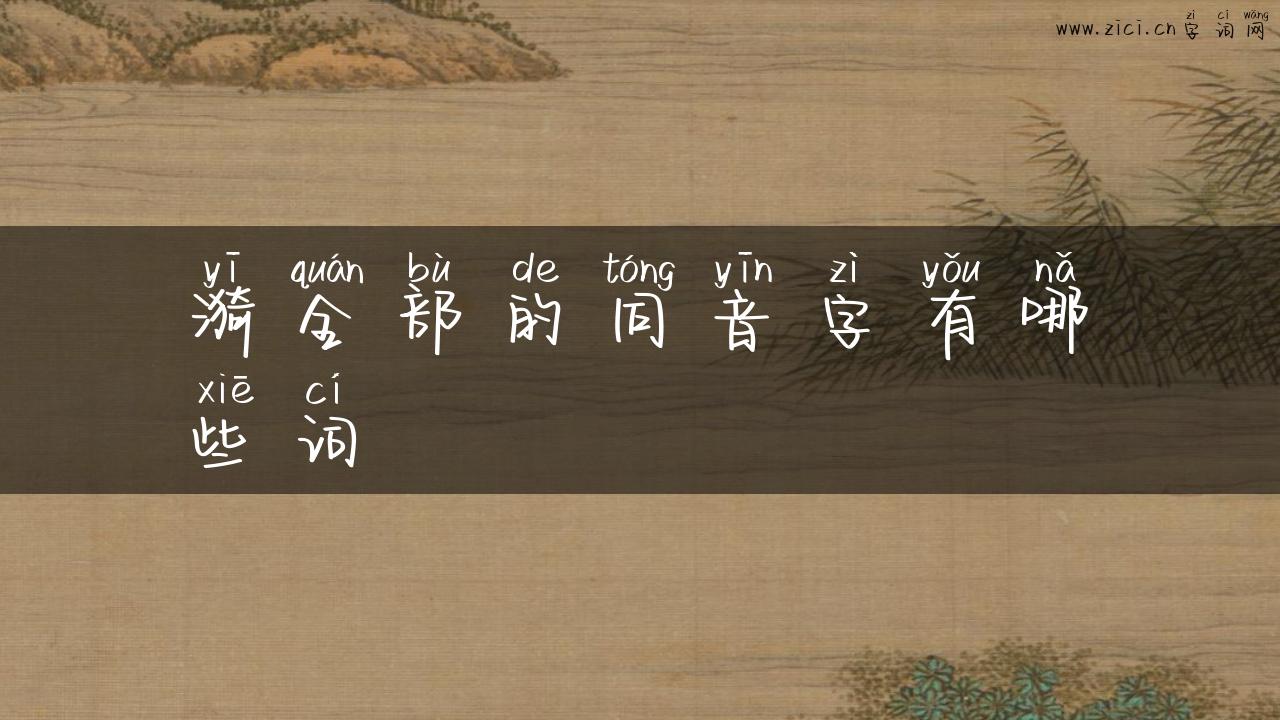 www.zici.cn zì cí wǎng
字词网
yī quán bù de tóng yīn zì yǒu nǎ
漪全部的同音字有哪
xiē cí
些词